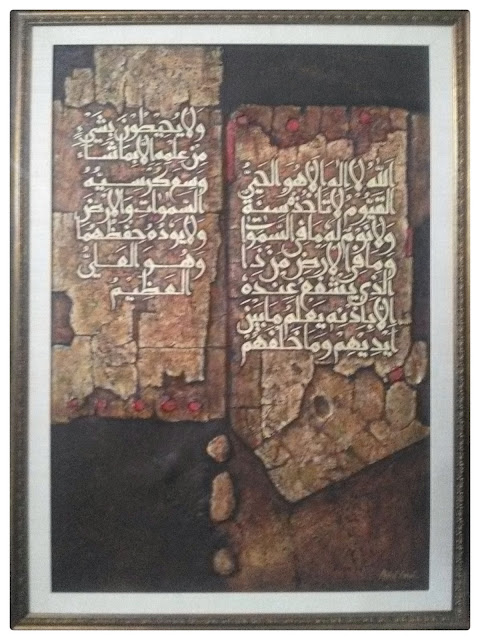 اَللهُ لَا إِلَهَ إِلَّا هُوَ الْحَيُّ
الْقَيُّومُ لَا تَأْخُذُهُ سِنَةٌ
وَلَا نَوْمٌ لَهُ مَا فِي السَّمَوَاتِ
وَمَا فِي الْأَرْضِ مَنْ ذَا
الَّذِي يَشْفَعُ عِنْدَهُ
إِلَّا بِإِذْنِهِ يَعْلَمُ مَا بَيْنَ
أَيْدِيهِمْ وَمَا خَلْفَهُمْ
وَلَا يُحِيطُونَ بِشَيْءٍ
مِنْ عِلْمِهِ إِلَّا بِمَا شَاءَ
وَسِعَ كُرْسِيُّهُ
السَّمَوَاتِ وَالْأَرْضَ
وَلَا يَؤُدُهُ حِفْظُهُمَا
وَهُوَ الْعَلِيُّ
الْعَظِيمُ